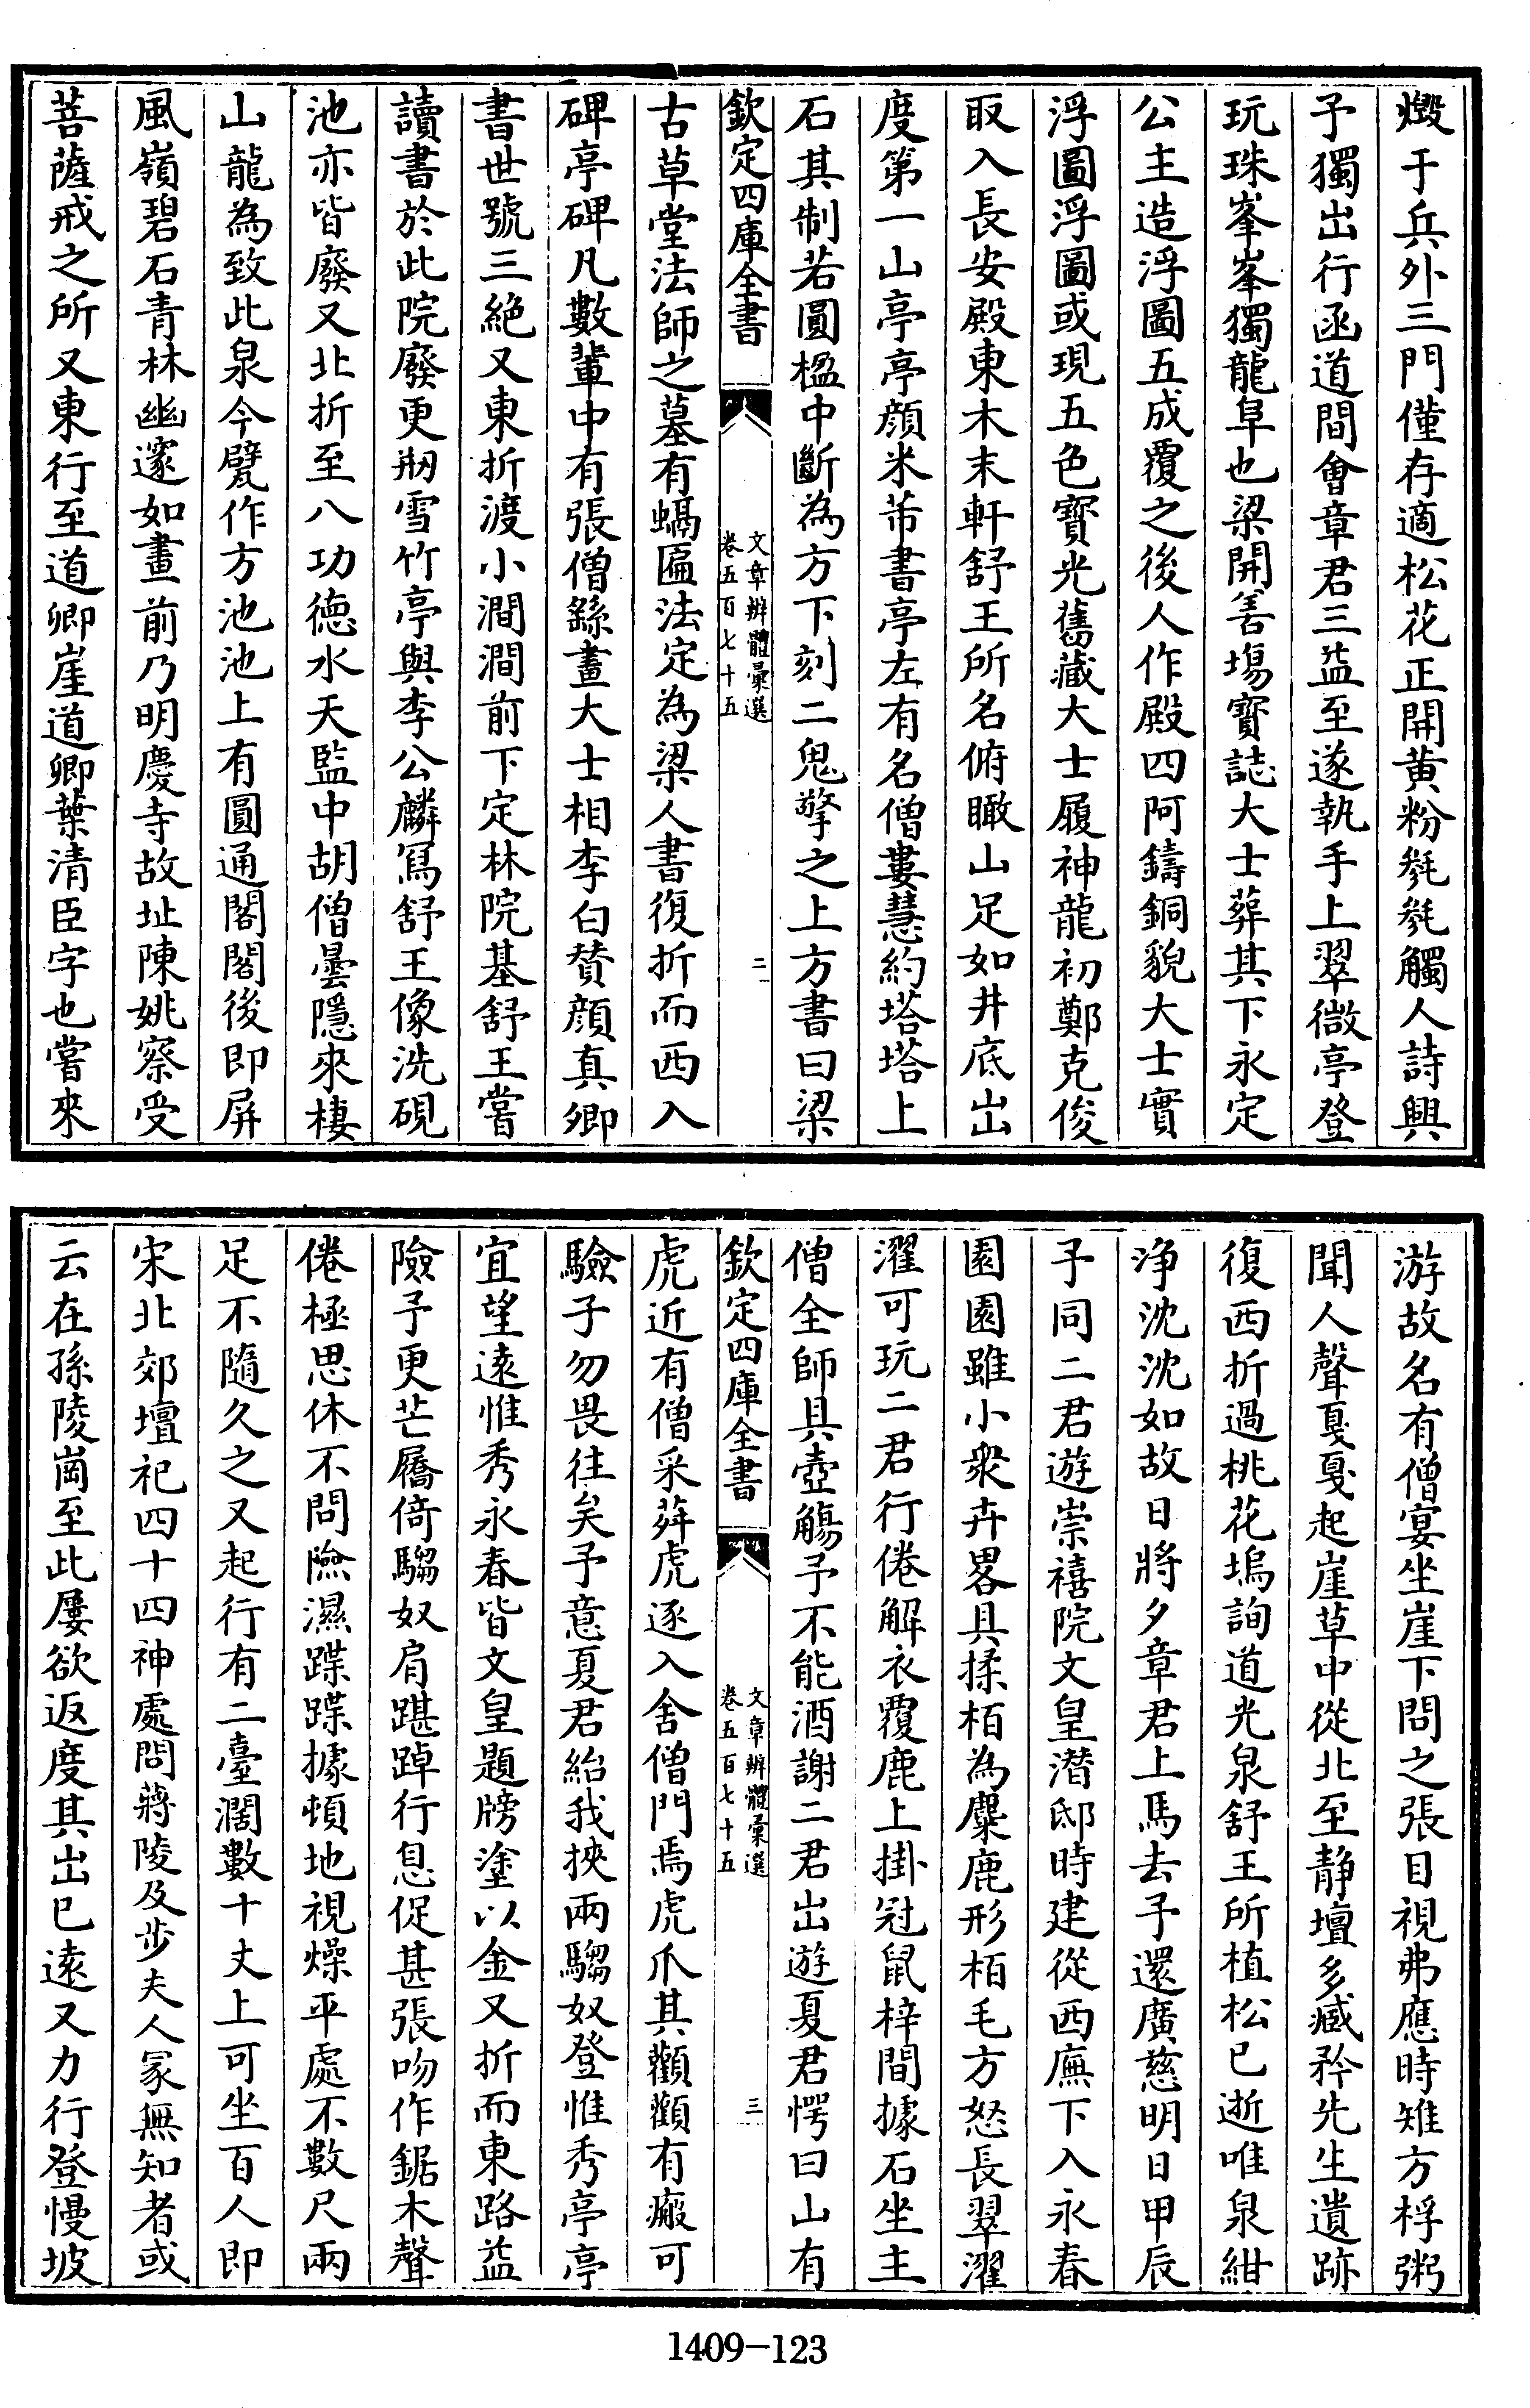 燬于兵外三門僅存適松花正開黄粉毿毿觸人詩興
予獨出行函道間㑹章君三益至遂執手上翠微亭登
玩珠峯峯獨龍阜也梁開善塲寳誌大士葬其下永定
公主造浮圖五成覆之後人作殿四阿鑄銅貌大士實
浮圖浮圖或現五色寳光舊藏大士履神龍初鄭克俊
取入長安殿東木末軒舒王所名俯瞰山足如井底出
度第一山亭亭顔米芾書亭左有名僧婁慧約塔塔上
石其制若圓楹中斷為方下刻二鬼擎之上方書曰梁
欽定四庫全書
文章辨體彙選
卷五百七十五
二
古草堂法師之墓有蝸匾法定為梁人書復折而西入
碑亭碑凡數輩中有張僧繇畫大士相李白賛顔真卿
書世號三絶又東折渡小澗澗前下定林院基舒王嘗
讀書於此院廢更剏雪竹亭與李公麟冩舒王像洗硯
池亦皆廢又北折至八功徳水天監中胡僧曇隱來棲
山龍為致此泉今甃作方池池上有圓通閣閣後即屏
風嶺碧石青林幽邃如畫前乃明慶寺故址陳姚察受
菩薩戒之所又東行至道卿崖道卿葉清臣字也嘗來
游故名有僧宴坐崖下問之張目視弗應時雉方桴粥
聞人聲戛戛起崖草中從北至静壇多臧矜先生遺跡
復西折過桃花塢詢道光泉舒王所植松已逝唯泉紺
浄沈沈如故日將夕章君上馬去予還廣慈明日甲辰
予同二君遊崇禧院文皇潜邸時建從西廡下入永春
園園雖小衆卉畧具揉栢為麋鹿形栢毛方怒長翠濯
濯可玩二君行倦解衣覆鹿上掛冠鼠梓間據石坐主
僧全師具壺觴予不能酒謝二君出遊夏君愕曰山有
欽定四庫全書
文章辨體彙選
卷五百七十五
三
虎近有僧采荈虎逐入舍僧門焉虎爪其顴顴有瘢可
驗子勿畏往矣予意夏君紿我挾兩騶奴登惟秀亭亭
宜望逺惟秀永春皆文皇題牓塗以金又折而東路益
險予更芒屩倚騶奴肩踸踔行息促甚張吻作鋸木聲
倦極思休不問險濕蹀蹀據頓地視燥平處不數尺兩
足不隨久之又起行有二臺濶數十丈上可坐百人即
宋北郊壇祀四十四神處問蔣陵及步夫人冢無知者或
云在孫陵岡至此屢欲返度其出已逺又力行登慢坡
1409-123